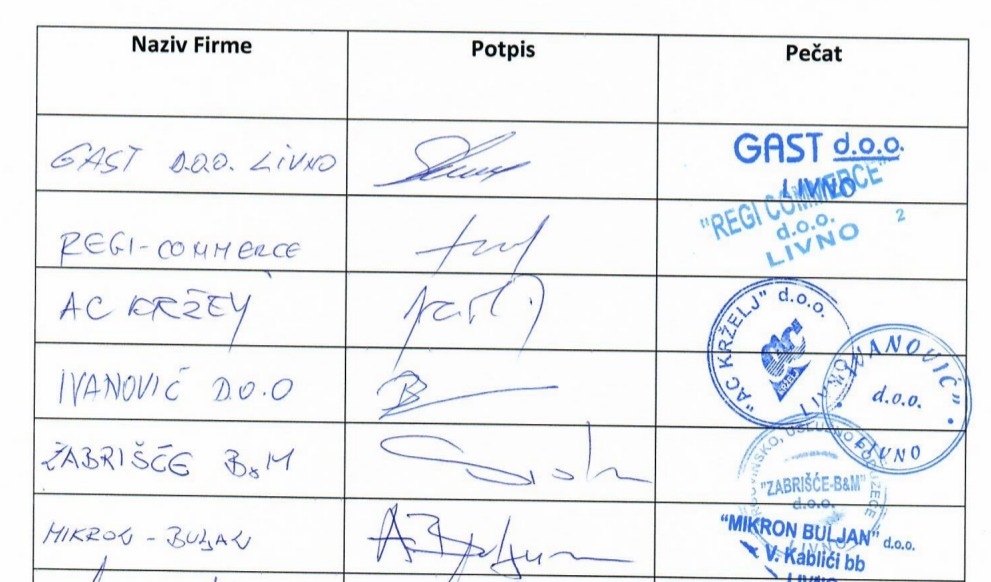 Naziv Firme Potpis Pečat
GAST D.O.O. LIVNO
GAST d.o.o.
LIVNO
REGI-COMMERCE
"REGI COMMERCE"
d.o.o.
LIVNO
2
AC KRŽELJ
"AC KRŽELJ" d.o.o.
LIVNO
IVANOVIĆ D.O.O
"IVANOVIĆ"
d.o.o.
LIVNO
ŽABRIŠĆE B&M
"ZABRIŠĆE-B&M"
d.o.o.
LIVNO
MIKRON - BULJAN
"MIKRON BULJAN" d.o.o.
V. Kablići bb
LIVNO